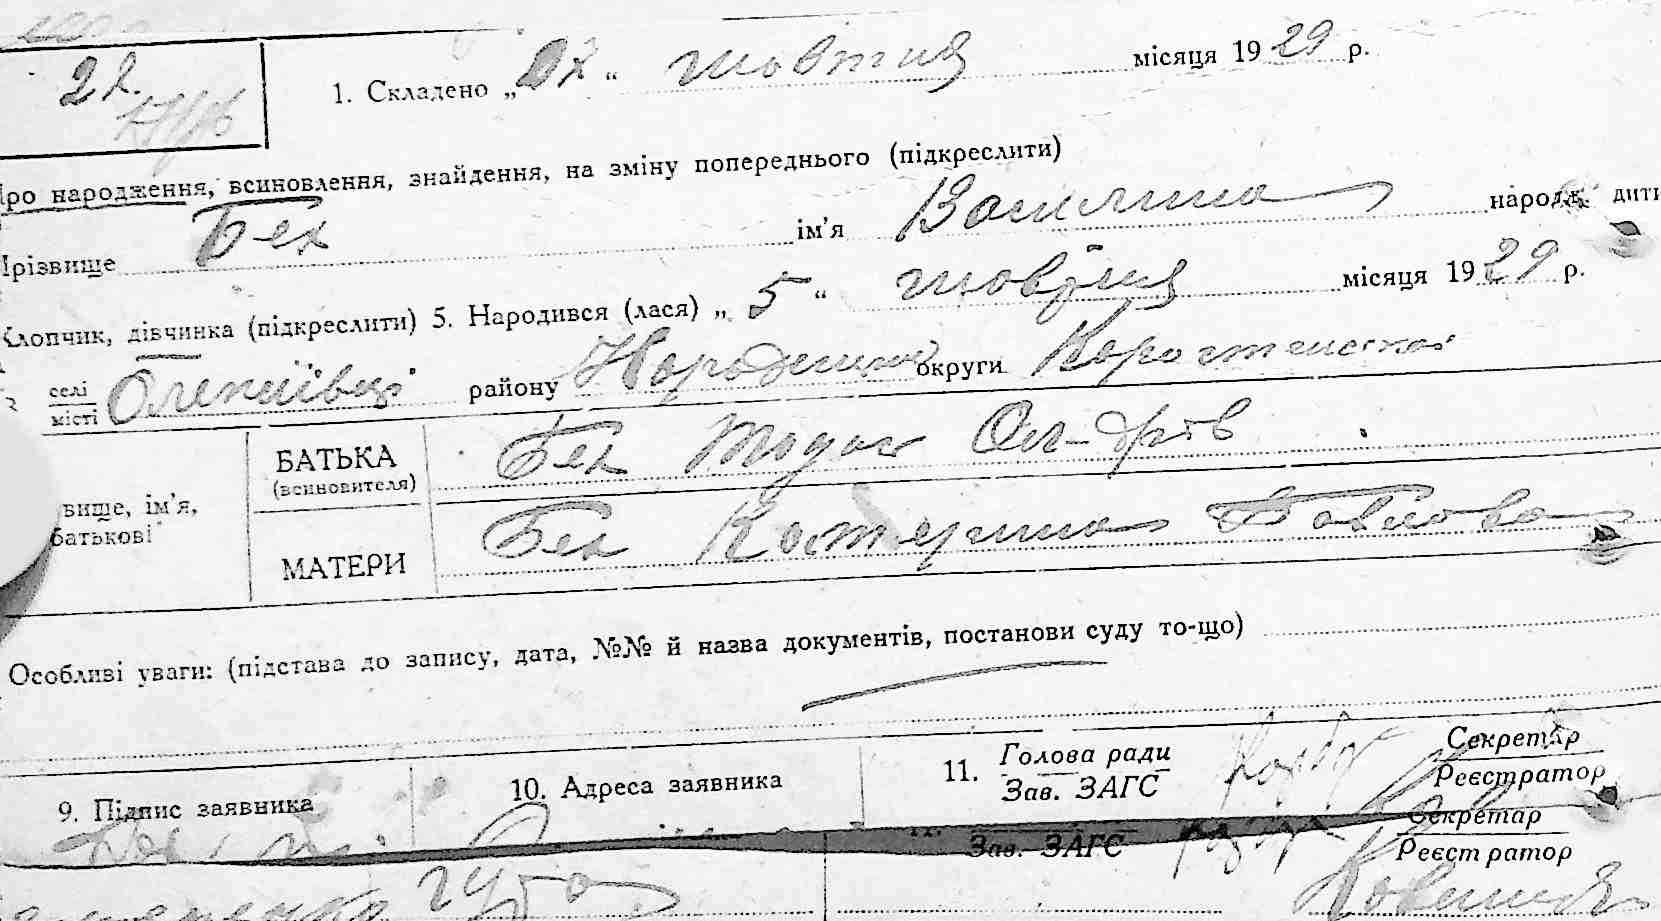 22.
1. Складено „ 22 “ жовтня місяця 1929 р.
про народження, всиновлення, знайдення, на зміну попереднього (підкреслити)
Прізвище Бех ім’я Василина народж. дити
Хлопчик, дівчинка (підкреслити) 5. Народився (лася) „ 5 “ жовтня місяця 1929 р.
селі
місті Олексіївці району Народицьк округи Коростенської
БАТЬКА Бех Тодос Ол-дрів
(всиновителя)
вище, ім’я,
батькові
МАТЕРИ Бех Катерина Павлова
Особливі уваги: (підстава до запису, дата, №№ й назва документів, постанови суду то-що)
9. Підпис заявника 10. Адреса заявника 11. Голова ради Секретар
Зав. ЗАГС Реєстратор
Секретар
Зав. ЗАГС Реєстратор